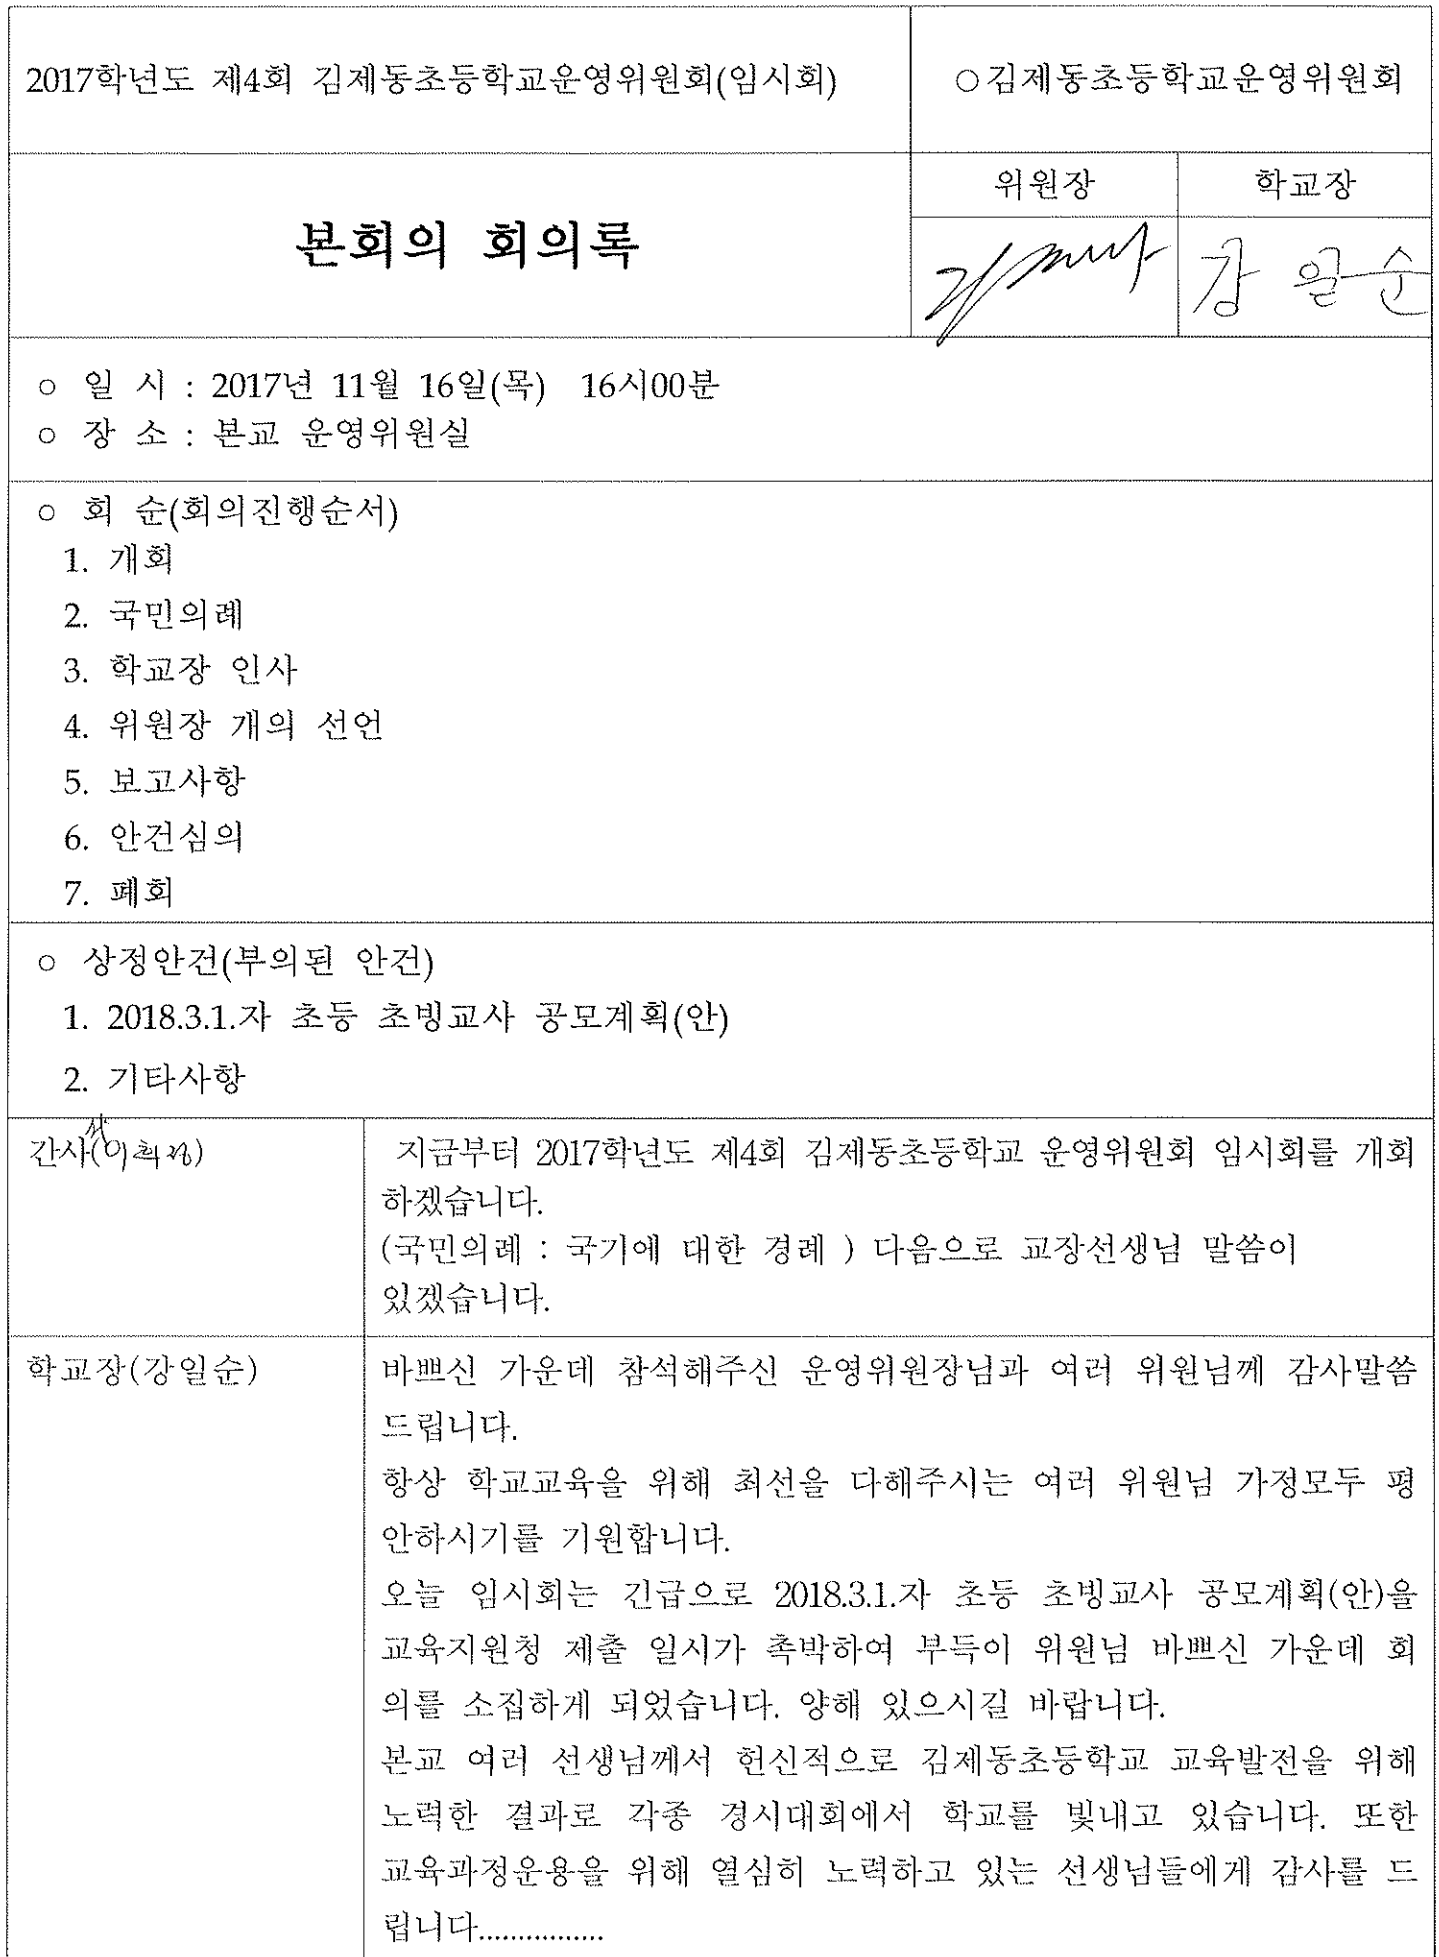 2017학년도 제4회 김제동초등학교운영위원회(임시회)
○김제동초등학교운영위원회
본회의 회의록
위원장
학교장
강일순
○ 일 시 : 2017년 11월 16일(목) 16시00분
○ 장 소 : 본교 운영위원실
○ 회 순(회의진행순서)
1. 개회
2. 국민의례
3. 학교장 인사
4. 위원장 개의 선언
5. 보고사항
6. 안건심의
7. 폐회
○ 상정안건(부의된 안건)
1. 2018.3.1.자 초등 초빙교사 공모계획(안)
2. 기타사항
간사
지금부터 2017학년도 제4회 김제동초등학교 운영위원회 임시회를 개회
하겠습니다.
(국민의례 : 국기에 대한 경례 ) 다음으로 교장선생님 말씀이
있겠습니다.
학교장(강일순)
바쁘신 가운데 참석해주신 운영위원장님과 여러 위원님께 감사말씀
드립니다.
항상 학교교육을 위해 최선을 다해주시는 여러 위원님 가정모두 평
안하시기를 기원합니다.
오늘 임시회는 긴급으로 2018.3.1.자 초등 초빙교사 공모계획(안)을
교육지원청 제출 일시가 촉박하여 부득이 위원님 바쁘신 가운데 회
의를 소집하게 되었습니다. 양해 있으시길 바랍니다.
본교 여러 선생님께서 헌신적으로 김제동초등학교 교육발전을 위해
노력한 결과로 각종 경시대회에서 학교를 빛내고 있습니다. 또한
교육과정운용을 위해 열심히 노력하고 있는 선생님들에게 감사를 드
립니다................